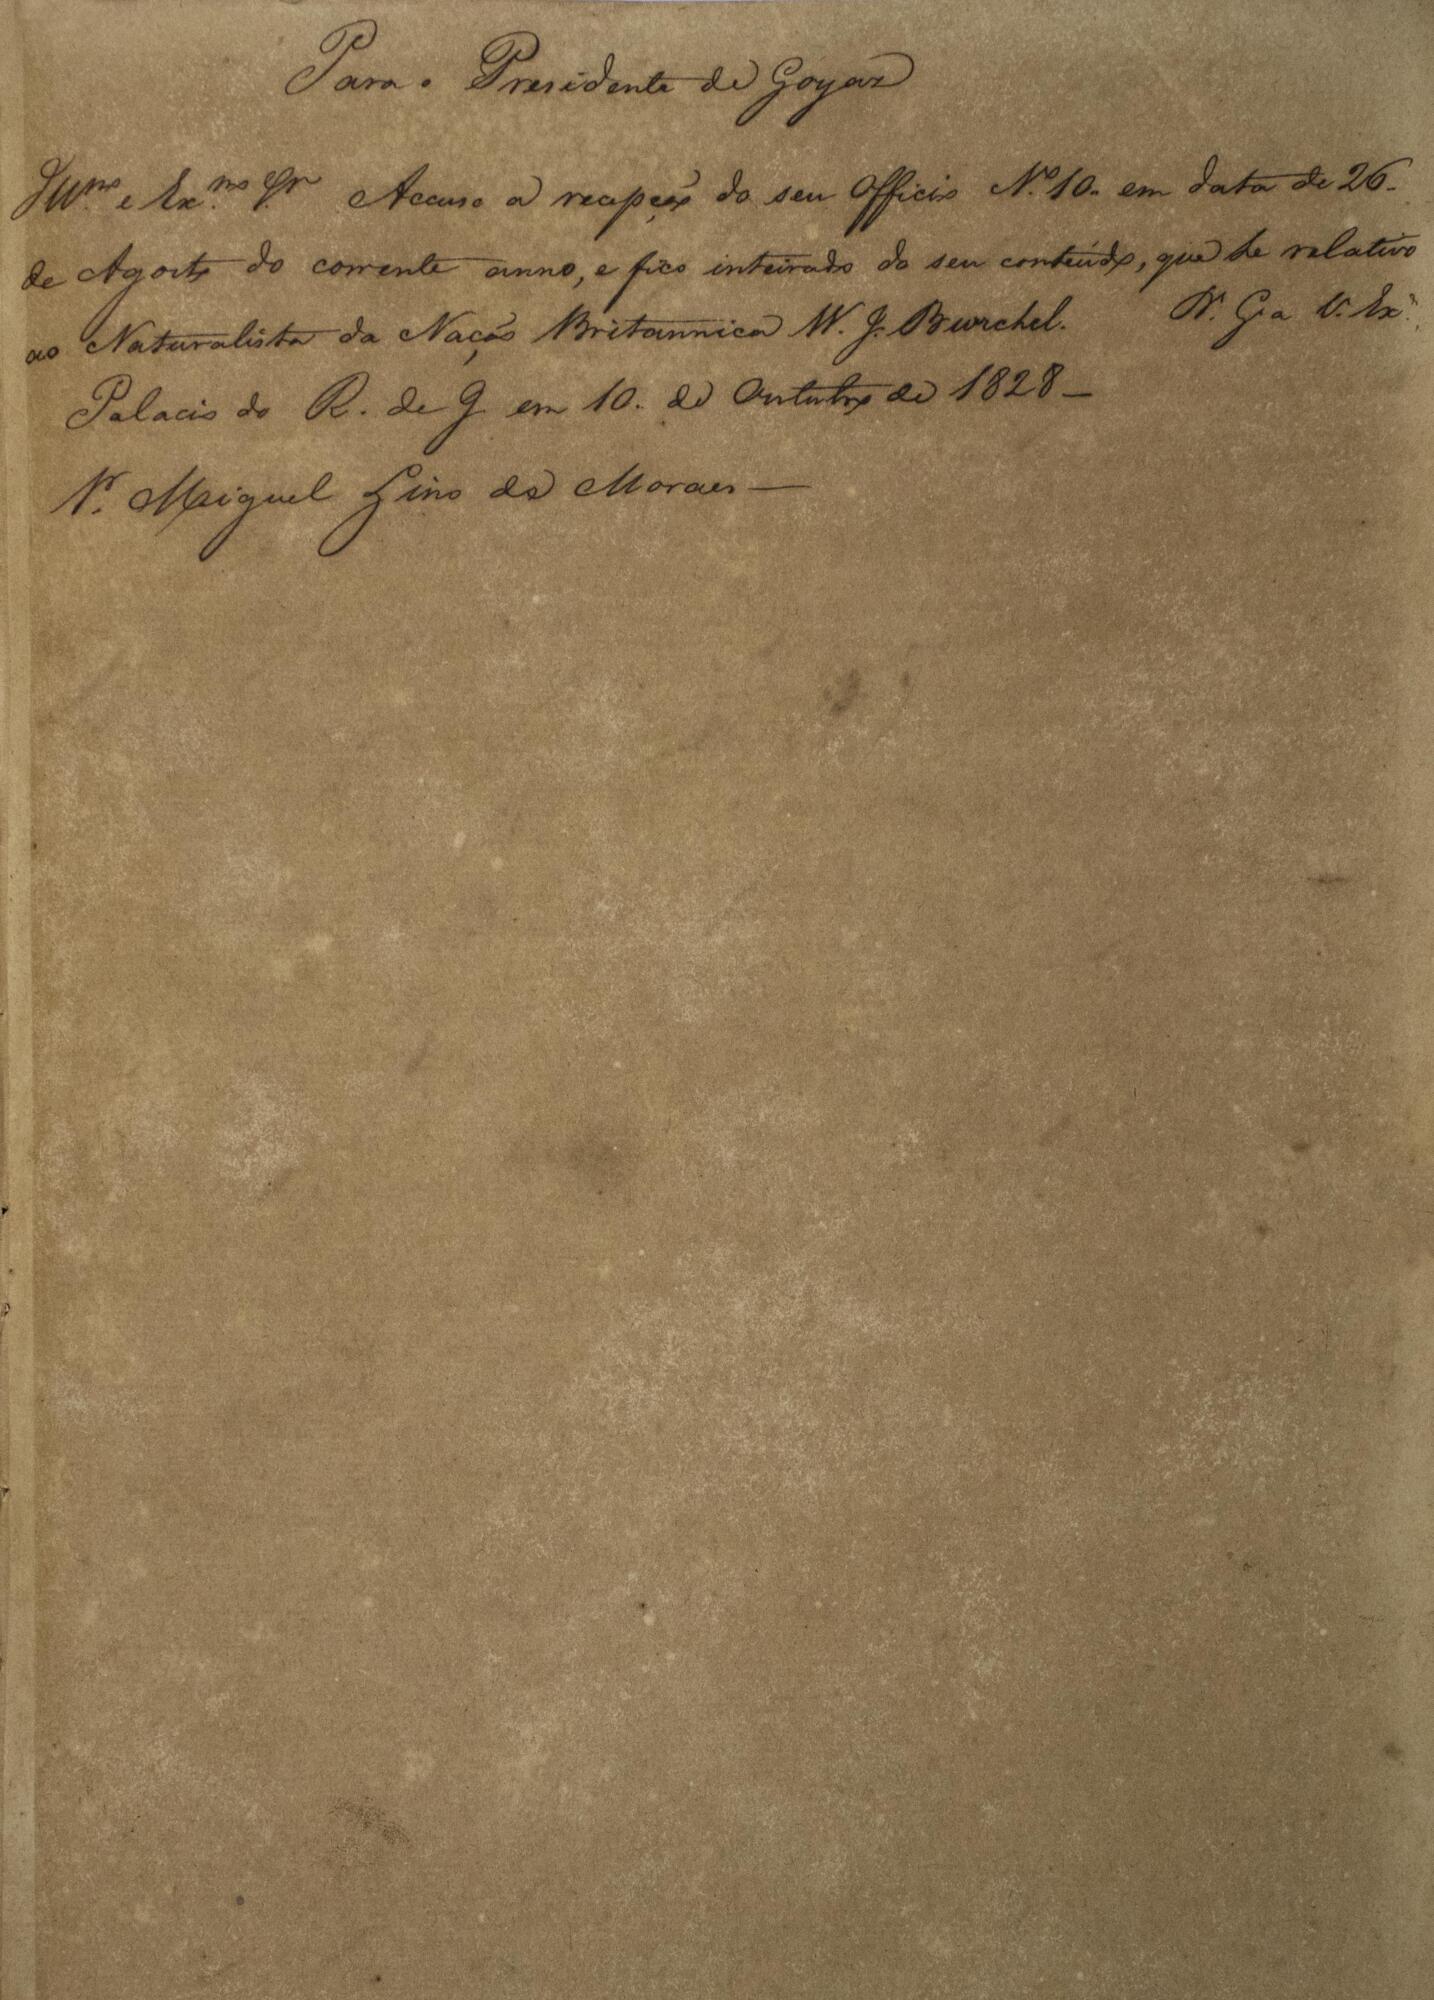 Para o Presidente de Goyaz
Illmo e Exmo Sr Accuso a recepção do seu Officio No 10. em data de 26.
de Agosto do corrente anno, e fico inteirado do seu conteúdo, que he relativo
ao Naturalista da Nação Britannica W. J. Burchel. Ds. G. a V. Exa.
Palacio do R. de J. em 10. de Outubro de 1828 —
Sr. Miguel Lino de Moraes —